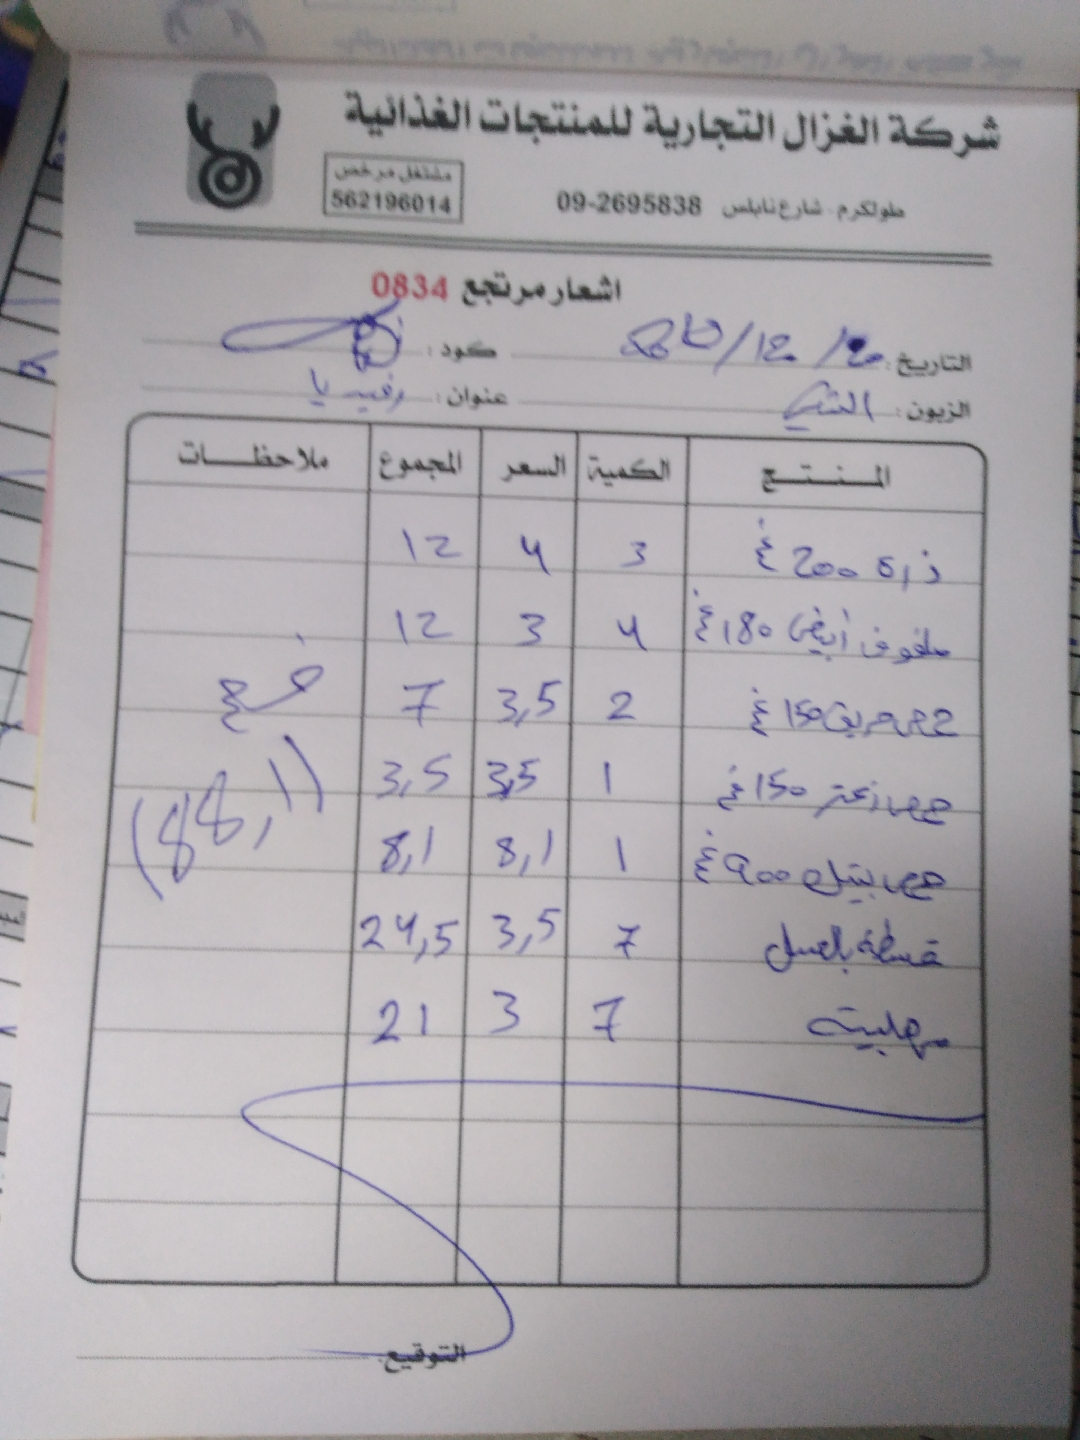 شركة الغزال التجارية للمنتجات الغذائية
طولكرم - شارع نابلس 09-2695838
مشتغل مرخص
562196014
اشعار مرتجع 0834
التاريخ: كود:
الزبون: عنوان: رفيديا
المنتج الكمية السعر المجموع ملاحظات
ذرة 200 غ 3 4 12
ملفوف أبيض 180 غ 4 3 12
حمص حريف 150 غ 2 3,5 7
حمص زعتر 150 غ 1 3,5 3,5
(88,1)
حمص بيتي 900 غ 1 8,1 8,1
قشطة بالعسل 7 3,5 24,5
مهلبية 7 3 21
التوقيع